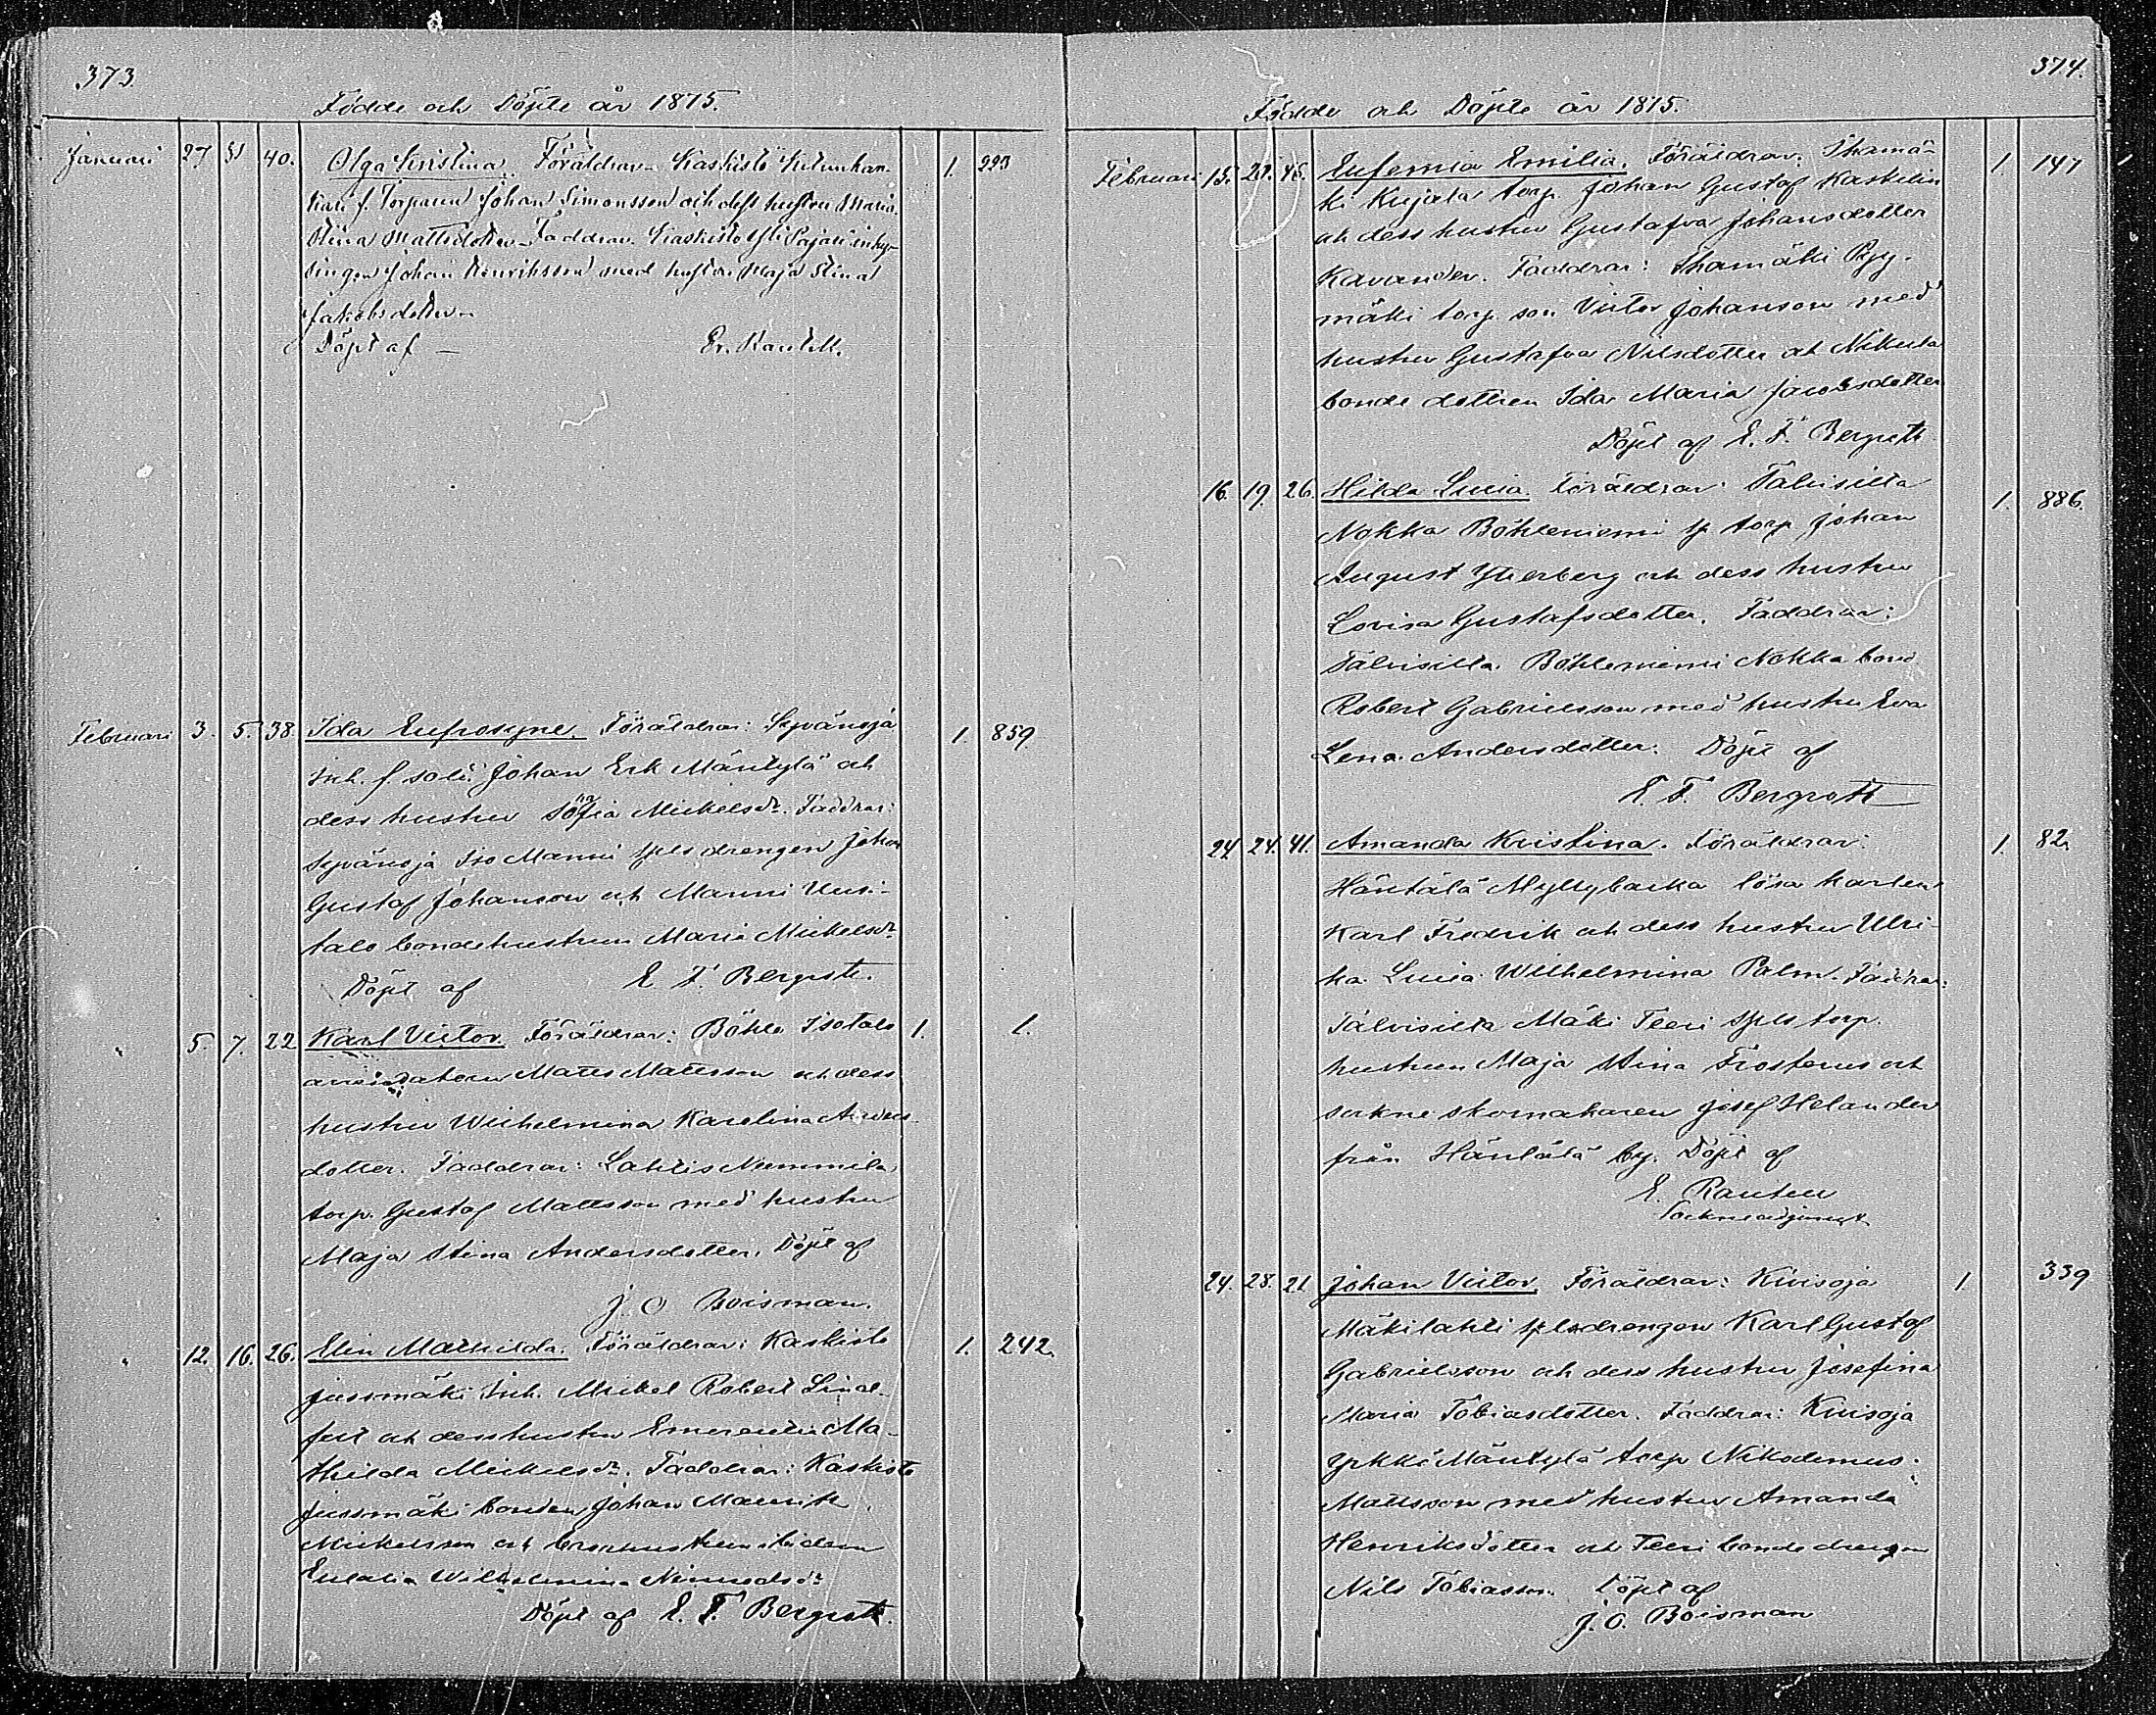 373.
Födde och Döpte år 1875.
Januari 27 31 40. Olga Kristina. Föräldrar Kaskisto
kari f. Torparen Johan Simonsson och dess hustru Maria
Stina Mattsdotter. Faddrar. Kaskisto Yli Pajari inhy-
singen Johan Henriksson med hustru Maja Stina
Jakobsdotter. 1. 223
Döpt af — Er. Rautell.
Februari 3. 5. 38. Ida Eufrosyne. Föräldrar: Syvänoja 1. 859.
Inh. f. sold. Johan Erik Mäntylä och
dess hustru Sofia Mickelsdr. Faddrar:
Syvänoja Iso Manni spls drengen Johan
Gustaf Johansson och Manni Uusi-
talo bondehustrun Maria Mickelsdr
Döpt af E. F. Bergroth.
5. 7. 22 Karl Victor. Föräldrar: Böhle Isotalo 1. 1.
arrendatorn Matts Mattsson och dess
hustru Wilhelmina Karolina
dotter. Faddrar: Lahtis Nummila
torp. Gustaf Mattsson med hustru
Maja Stina Andersdotter. Döpt af
J. O. Boisman.
12. 16. 26. Elin Mathilda. Föräldrar: Kaskisto 1. 242.
Jussmäki Inh. Mickel Robert Lind-
fest och dess hustru Emerentia Ma-
thilda Mickelsdr. Faddrar: Kaskisto
Jussmäki bonden Johan Maurits
Mickelsson och ibidem
Eulalia Wilhelmina
Döpt af E. F. Bergroth.
374.
Födde och Döpte år 1875.
Februari 15. 21. 45. Eufemia Emilia. Föräldrar: Ihamä- 1. 147
ki Kujala torp. Johan Gustaf Kaskelin
och dess hustru Gustafva Johansdotter
Kavander. Faddrar: Ihamäki Pyy-
mäki torp. son Victor Johanson med
hustru Gustafva Nilsdotter och Nikula
bonde dottren Ida Maria Jacobsdotter
Döpt af E. F. Bergroth
16. 19. 26. Hilda Lucia. Föräldrar: Talvisilta 1. 886.
Nokka Böhleniemi sp torp Johan
August Ytterberg och dess hustru
Lovisa Gustafsdotter. Faddrar:
Talvisilta Böhleniemi Nokka bond
Robert Gabrielsson med hustru Eva
Lena Andersdotter. Döpt af
E. F. Bergroth
24 24. 41. Amanda Kristina. Föräldrar: 1. 82.
Häntälä Myllybacka lösa karlen
Karl Fredrik och dess hustru Ulri-
ka Lucia Wilhelmina Palm. Faddrar:
Talvisilta Mäki Teeri spls torp.
hustrun Maja Stina Frosterus och
sockne skomakaren Josef Helander
från Häntälä by. Döpt af
E. Rautell
Sockneadjunct.
24. 28. 21. Johan Victor. Föräldrar: Kivisoja 1. 339
Mäkilahti spls drengen Karl Gustaf
Gabrielsson och dess hustru Josefina
Maria Tobiasdotter. Faddrar: Kivisoja
Yrkki Mäntylä torp Nikodemus
Mattsson med hustru Amanda
Henriksdotter och Teeri bonde drengen
Nils Tobiasson. Döpt af
J. O. Boisman